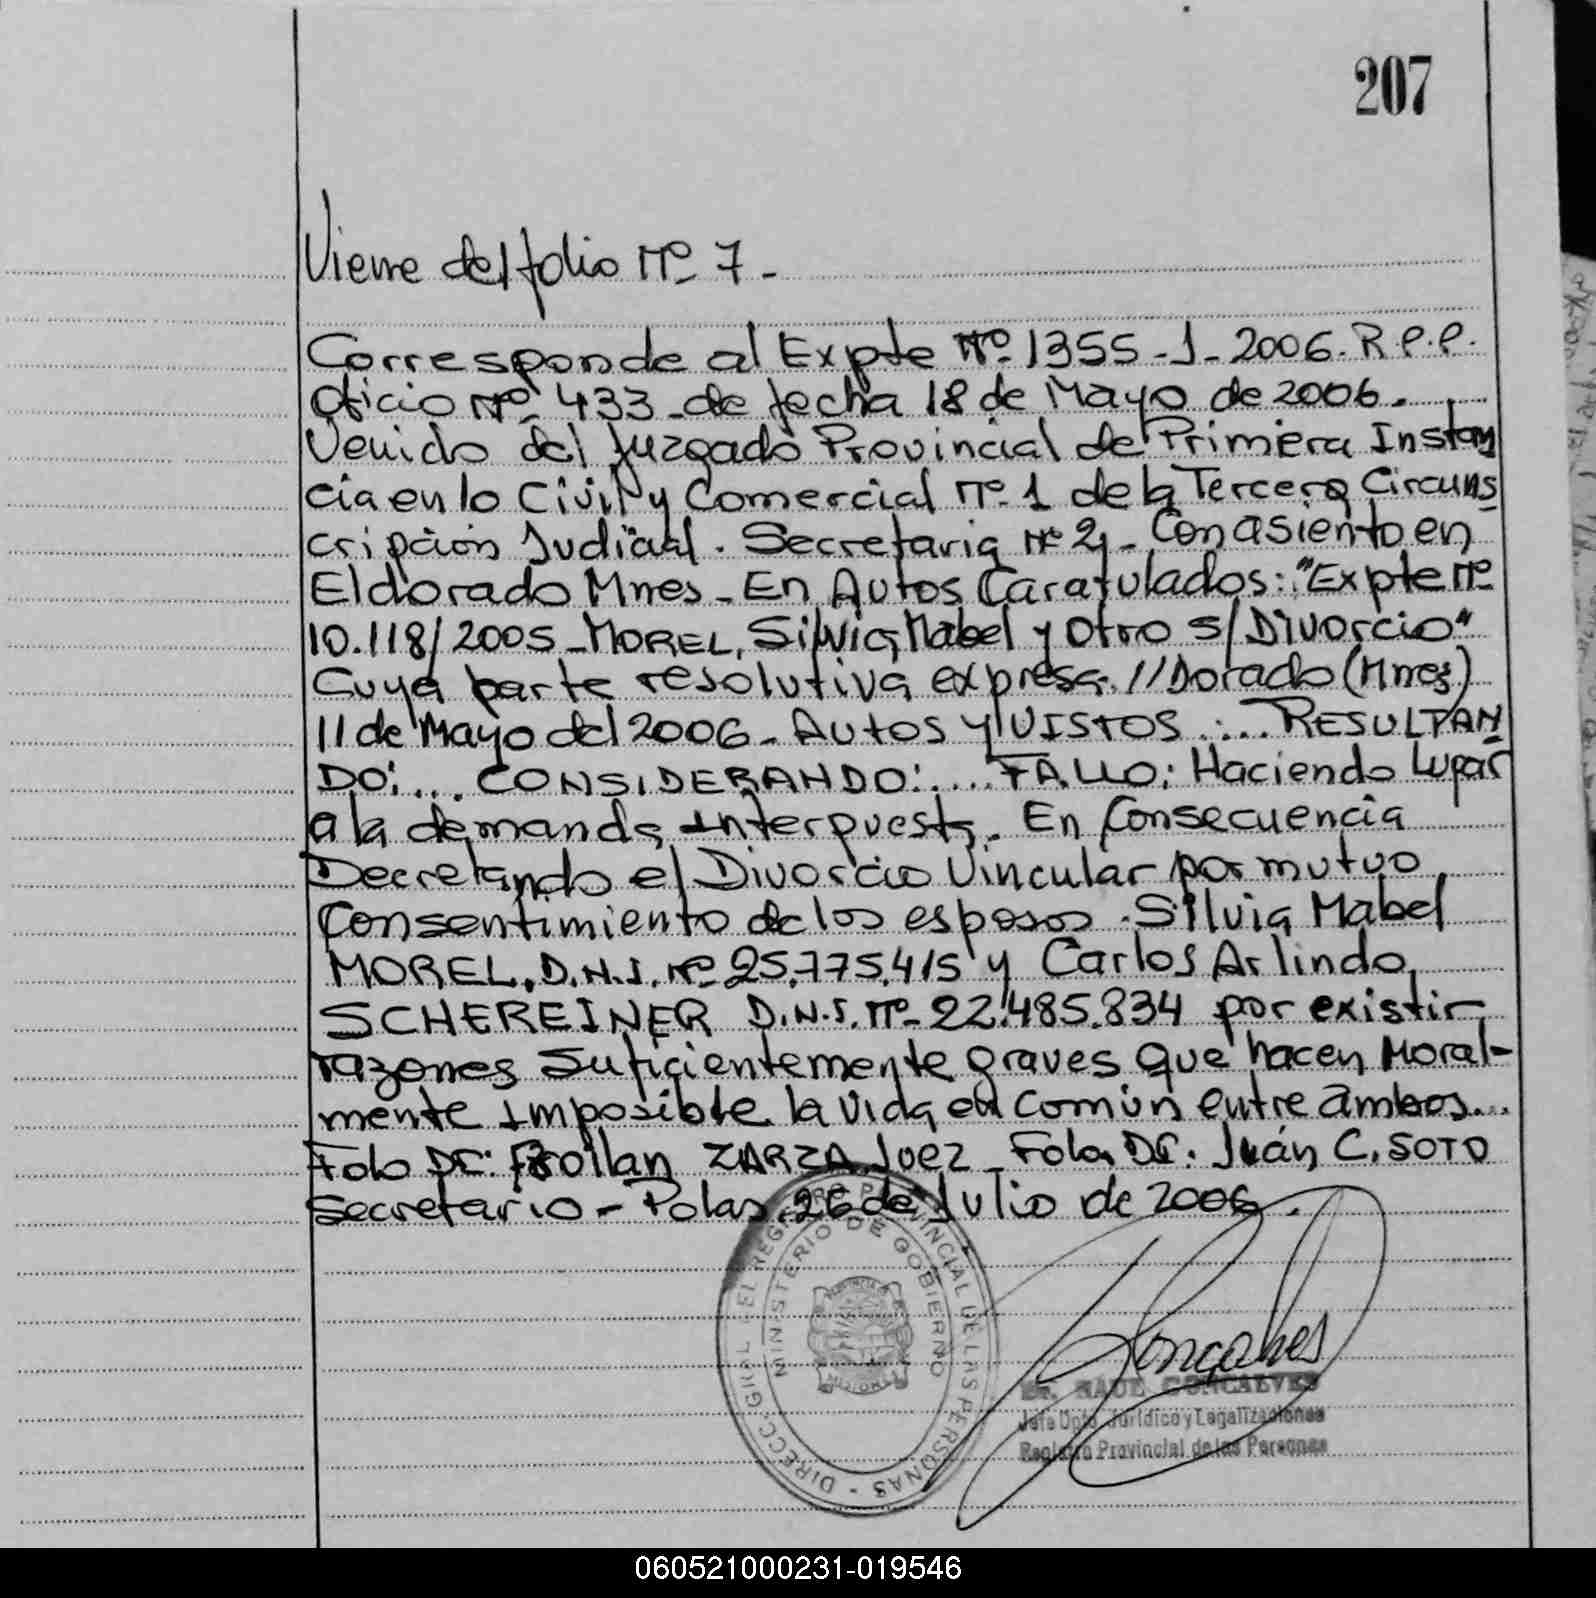 207
Viene del folio Nº 7 -
Corresponde al Expte Nº 1355 - J - 2006. R.P.P.
Oficio Nº 433 - de fecha 18 de Mayo de 2006.
Venido del Juzgado Provincial de Primera Instan
cia en lo Civil y Comercial Nº 1 de la Tercera Circuns
cripción Judicial. Secretaria Nº 2, - Con asiento en
Eldorado Mnes - En Autos Caratulados: "Expte Nº
10.118/2005 - MOREL, Silvia Mabel y Otro s/ Divorcio"
Cuya parte resolutiva expresa: //Dorado (Mnes)
11 de Mayo del 2006 - Autos y VISTOS :... RESULTAN
DO:... CONSIDERANDO:.... FALLO: Haciendo Lugar
a la demanda Interpuesta. En Consecuencia
Decretando el Divorcio Vincular por mutuo
Consentimiento de los esposos Silvia Mabel
MOREL, D.N.I. Nº 25.775.415 y Carlos Arlindo
SCHEREINER D.N.I. Nº 22.485.834 por existir
razones Suficientemente graves que hacen Moral-
mente Imposible la vida en común entre ambos...
Fdo Dr: ZARZA Juez - Fdo. Dr. Juán C. SOTO
Secretario - Pdas, 26 de Julio de 2006.
DIRECC. GRAL DEL REGISTRO PROVINCIAL DE LAS PERSONAS -
MINISTERIO DE GOBIERNO
PROVINCIA DE
MISIONES
Goncalves
GONCALVES
Jefe Dpto. Jurídico y Legalizaciones
Registro Provincial de las Personas
060521000231-019546